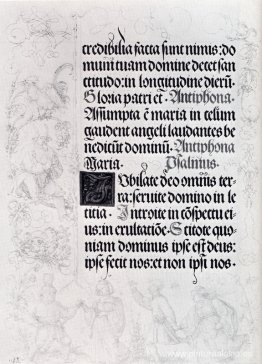 credibilia facta sunt nimis: do
mum tuam domine decet san
ctitudo: in longitudine dierū.
Gloria patri et. Antiphona.
Assumpta ē maria in celum
gaudent angeli laudantes be
nedicūt dominū. Antiphona
Maria. Psalmus.
IUbilate deo omnis ter-
ra: seruite domino in le
titia. Introite in cōspectu ei-
us: in exultatiōe. Scitote quo-
niam dominus ipse est deus:
ipse fecit nos: et non ipsi nos.